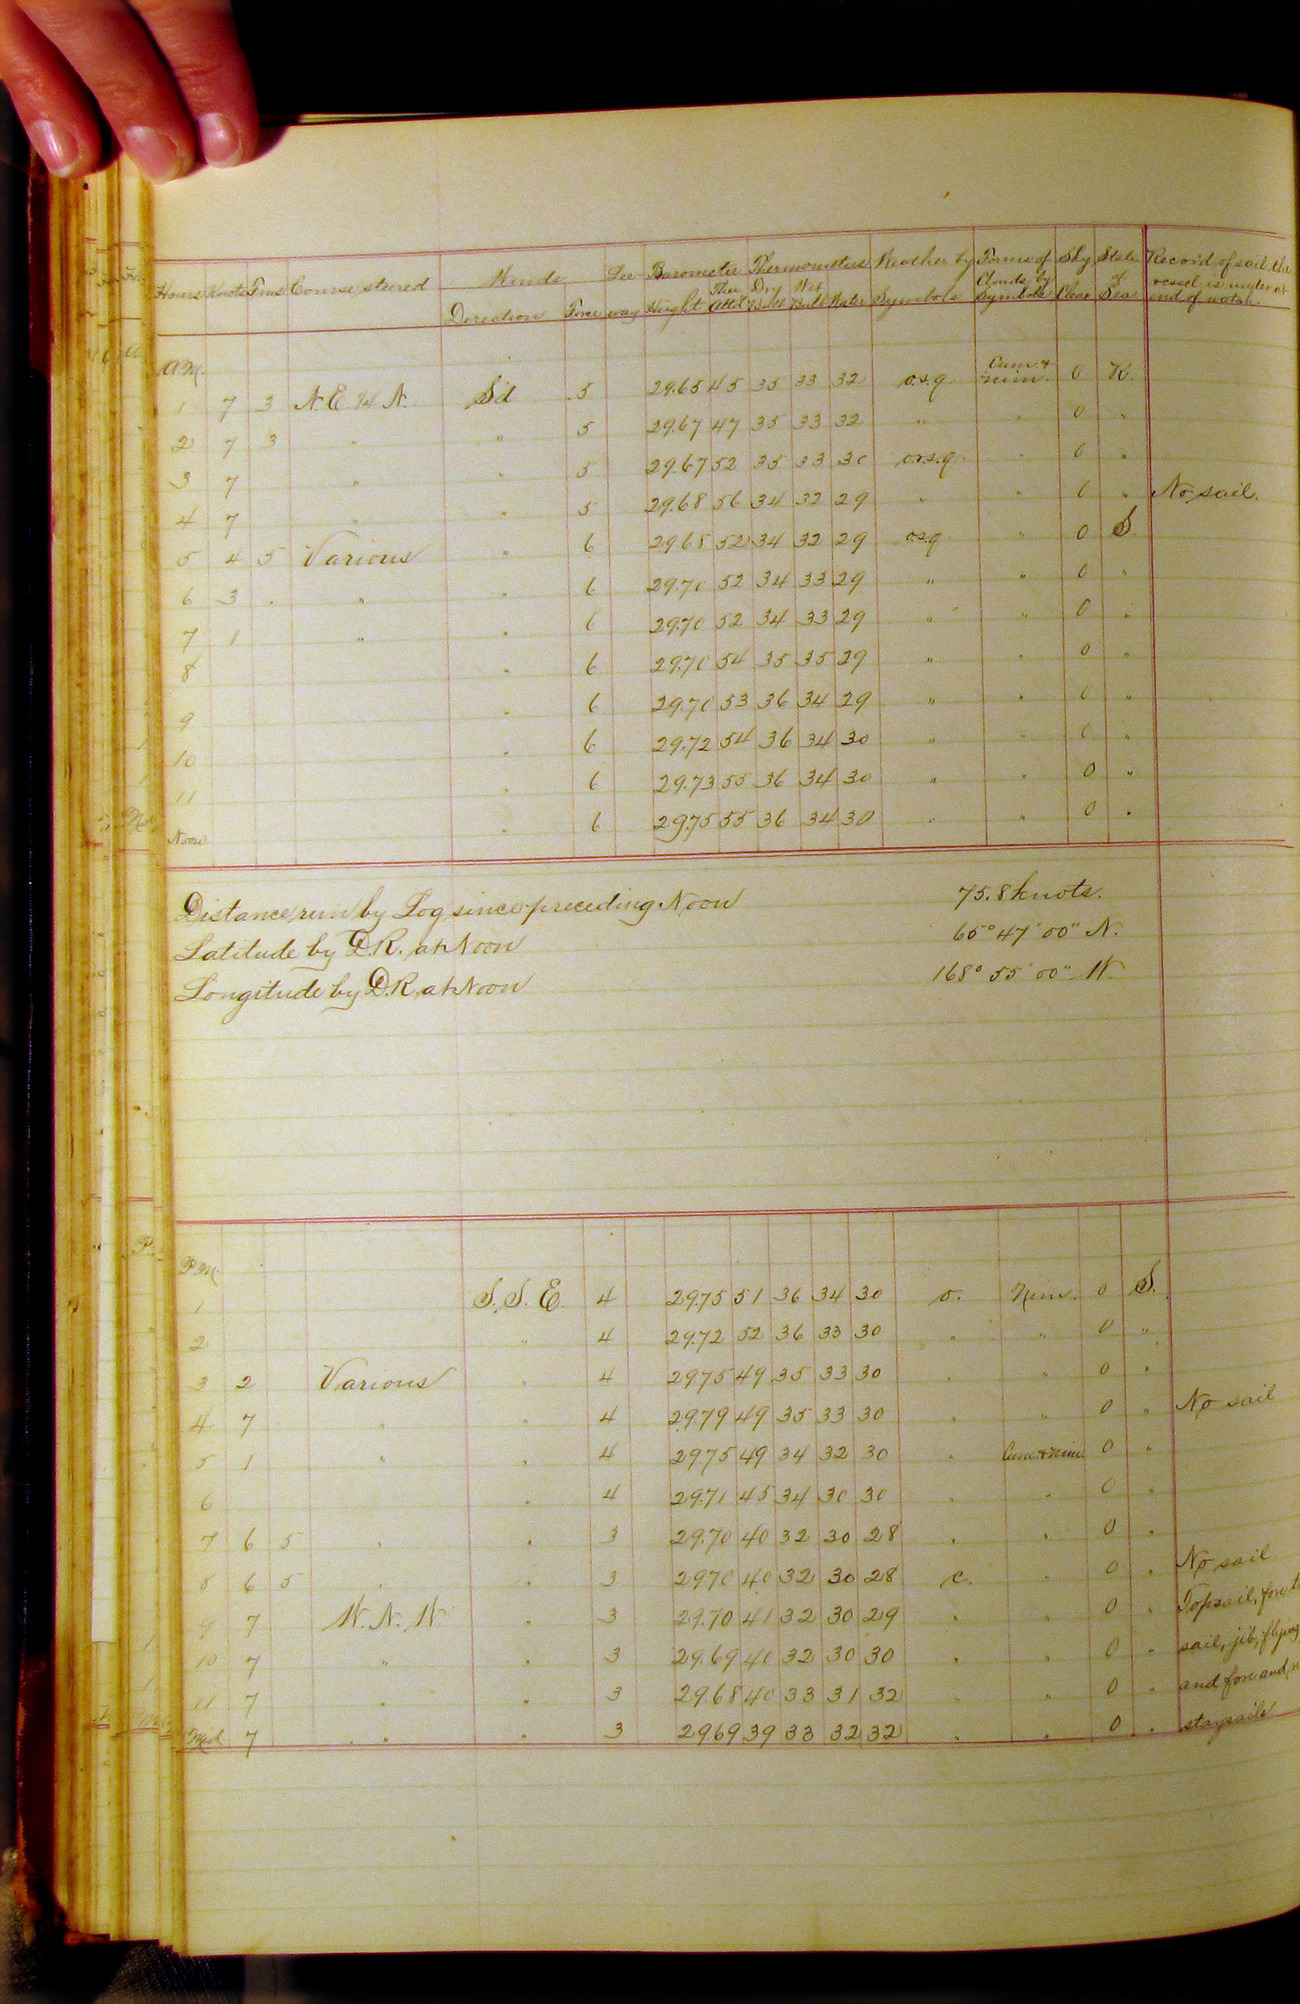 Hours Knots Fms Course steered Winds Lee Barometer Thermometers Weather by Forms of Sky State Record of sail the
Direction Force way Height Ther Attd Dry Bulb Wet Bulb Water Symbols Clouds by Symbols Clear of Sea vessel is under at end of watch.
A.M.
1 7 3 N.E. 1/4 N. S'd 5 29.65 45 35 33 32 o.s.q. Cum. & nim. 0 R.
2 7 3 " " 5 29.67 47 35 33 32 " " 0 "
3 7 " " 5 29.67 52 35 33 30 o.r.s.q. " 0 "
4 7 " " 5 29.68 56 34 32 29 " " 0 " No sail.
5 4 5 Various " 6 29.68 52 34 32 29 o.s.q. " 0 S.
6 3 . " " 6 29.70 52 34 33 29 " " 0 "
7 1 " " 6 29.70 52 34 33 29 " " 0 "
8 " 6 29.70 54 35 35 29 " " 0 "
9 " 6 29.70 53 36 34 29 " " 0 "
10 " 6 29.72 54 36 34 30 " " 0 "
11 " 6 29.73 55 36 34 30 " " 0 "
Noon " 6 29.75 55 36 34 30 " " 0 "
Distance run by Log since preceding Noon 75.8 knots.
Latitude by D.R. at Noon 65° 47' 00" N.
Longitude by D.R. at Noon 168° 55' 00" W.
P.M.
1 S. S. E. 4 29.75 51 36 34 30 o. Nim. 0 S.
2 " 4 29.72 52 36 33 30 " " 0 "
3 2 Various " 4 29.75 49 35 33 30 " " 0 "
4 7 " " 4 29.79 49 35 33 30 " " 0 " No sail
5 1 " " 4 29.75 49 34 32 30 " Cum. & Nim. 0 "
6 " 4 29.71 45 34 30 30 " " 0 "
7 6 5 " " 3 29.70 40 32 30 28 " " 0 "
8 6 5 " " 3 29.70 40 32 30 28 c. " 0 " No sail
9 7 W. N. W " 3 29.70 41 32 30 29 " " 0 " Topsail, fore
10 7 " " 3 29.69 40 32 30 30 " " 0 " sail, jib, flying
11 7 " " 3 29.68 40 33 31 32 " " 0 " and fore and
Mid 7 " " 3 29.69 39 33 32 32 " " 0 " staysails